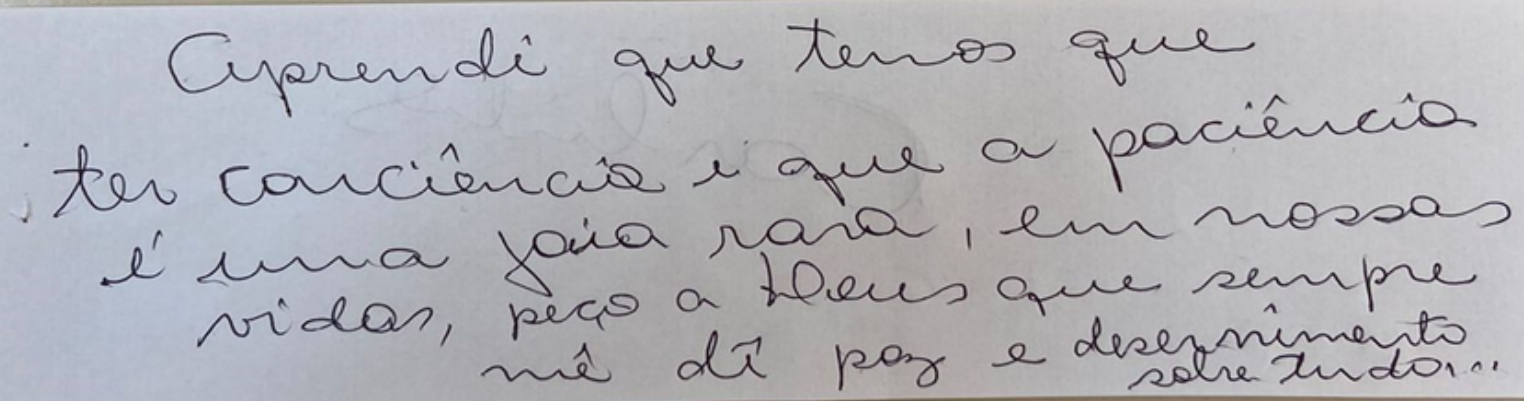 Aprendi que temos que
ter conciência e que a paciência
é uma joia rara, em nossas
vidas, peço a Deus que sempre
mê dê paz e desernimento
sobre tudo...